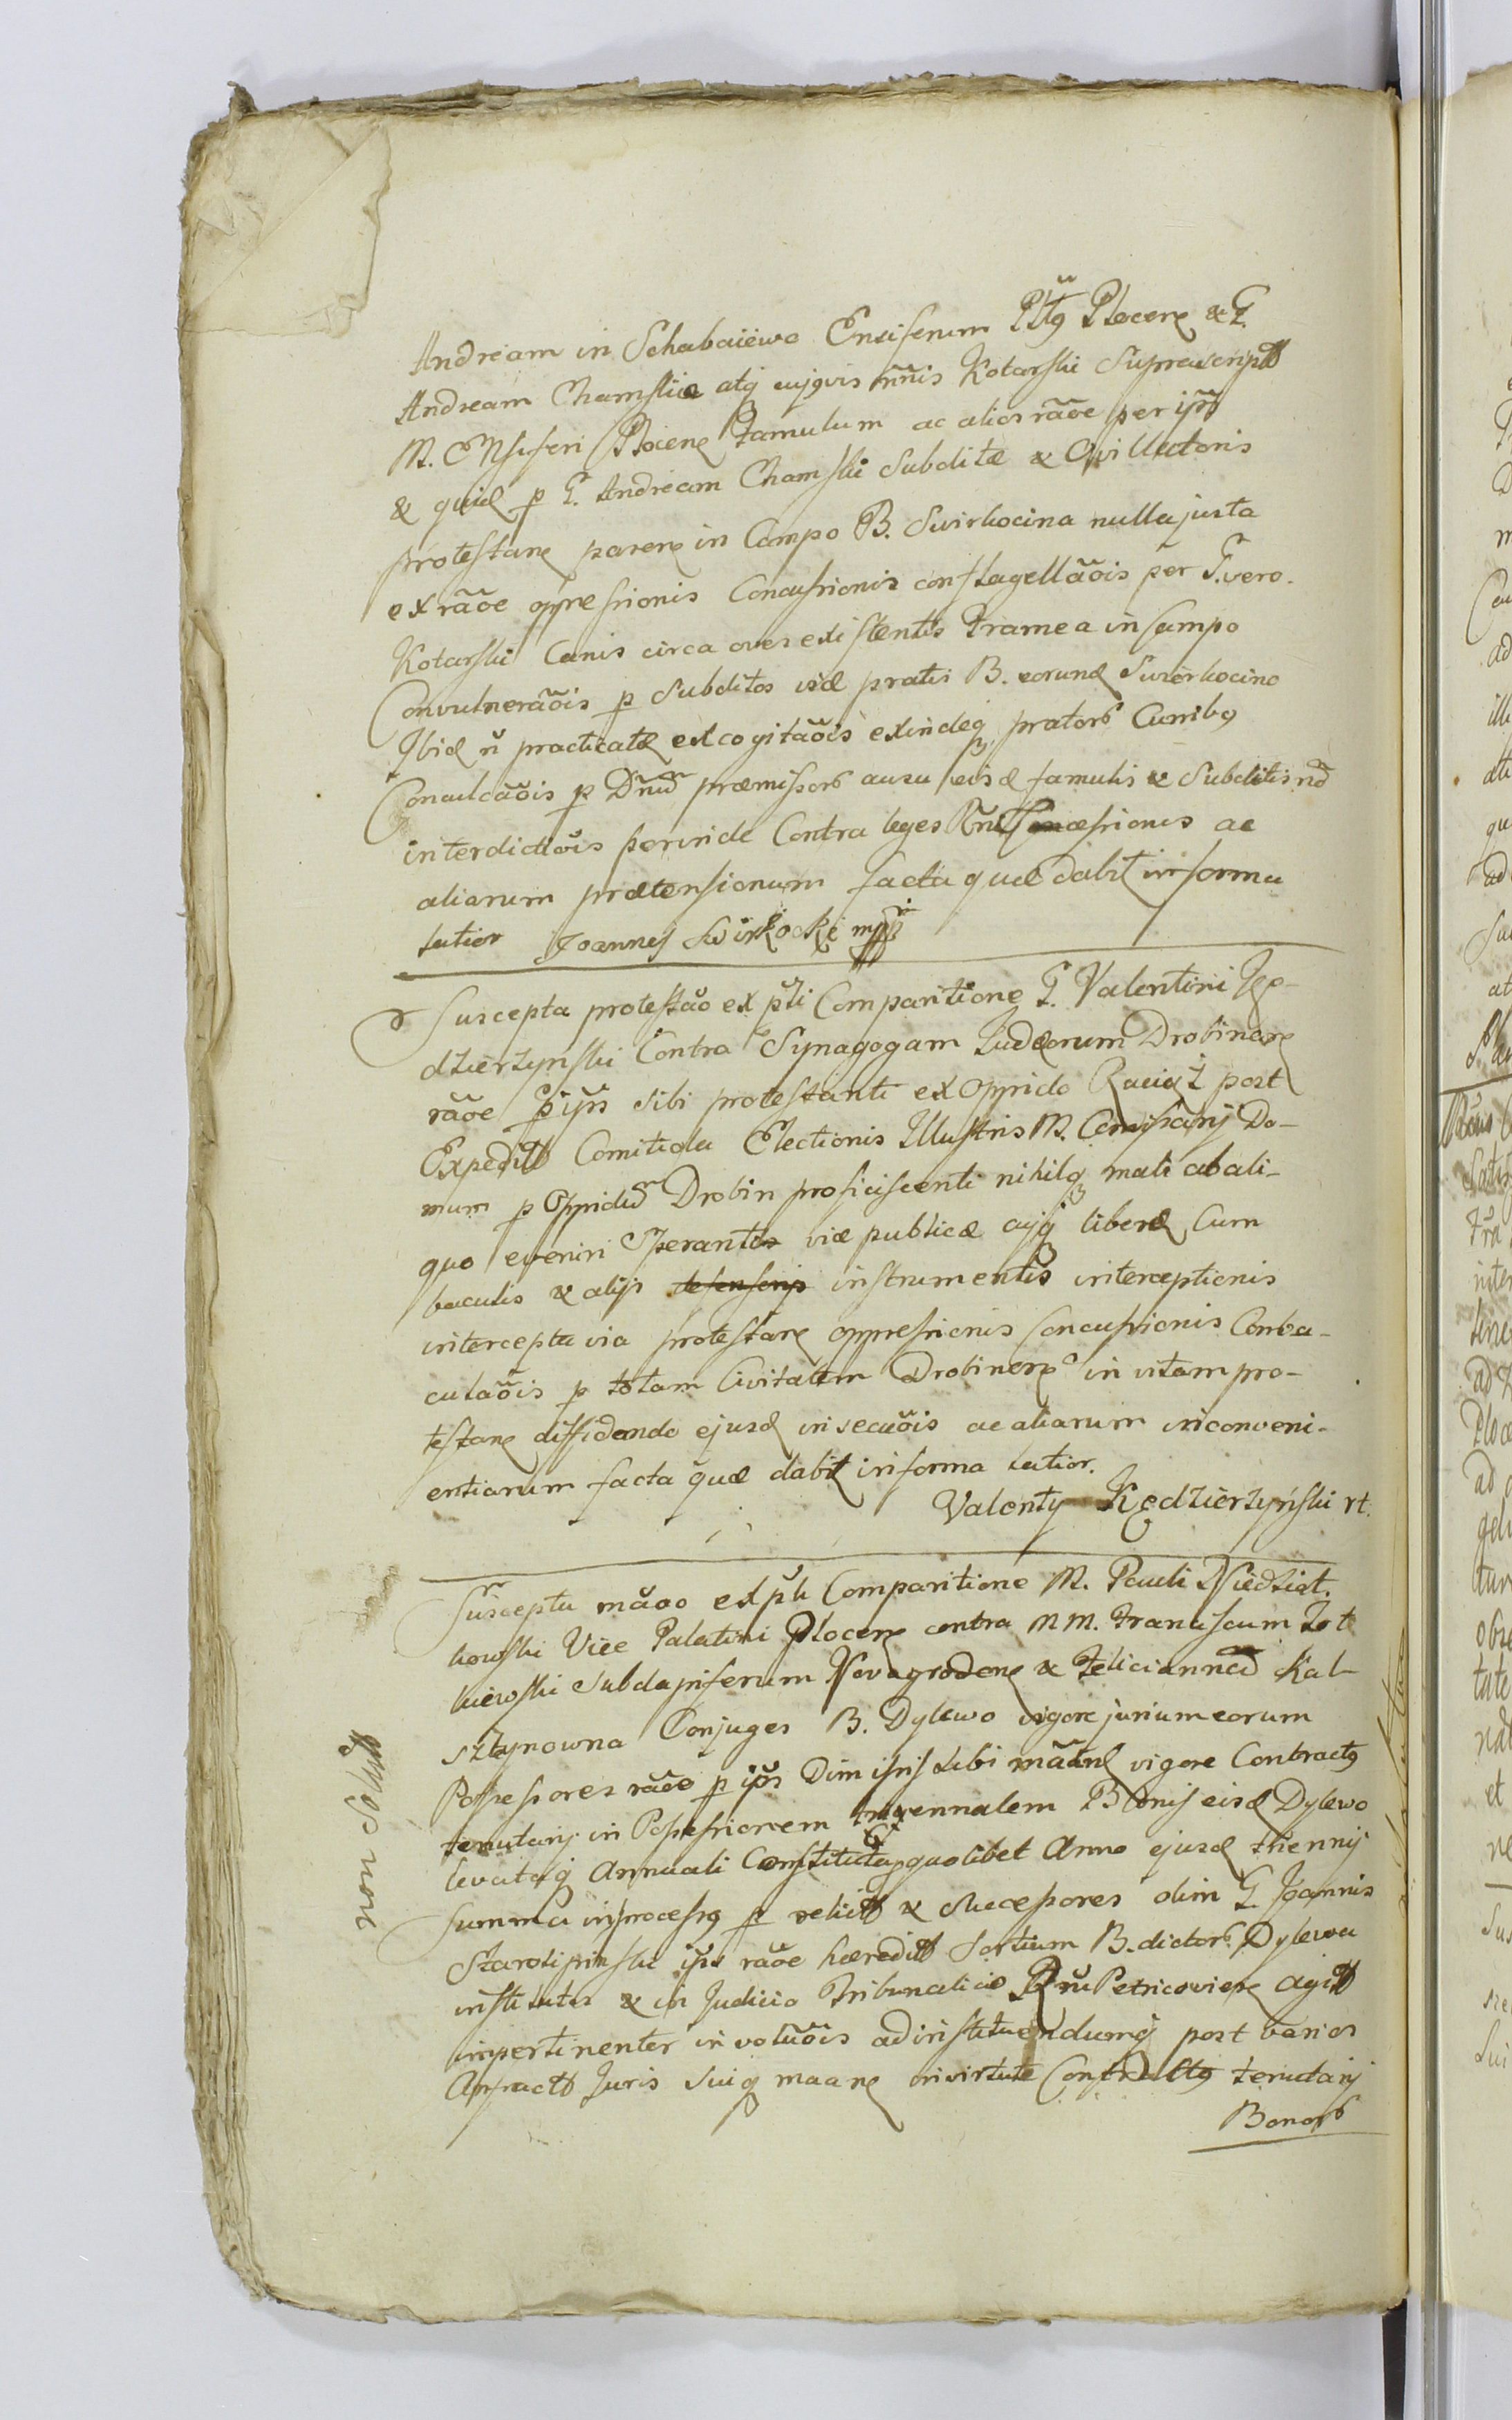 Andream in Schabaiewo Ensiferum Pltg Plocens & G.
Andream Chamskie atq cujqvis nñis Kotarski Suprascriptt
M. Ensiferi Plocens Famulum ac alios rãoe per ips
& quid p G. Andream Chamski Subditæ & Opillutoris
protestans parens in Campo B. Swirkocina nulla justa
ex rãoe oppressionis Concussionis conflagellãois per G. vero.
Kotarski Canis circa oves existentis Framea in Campo
Convulnerãois p Subditos isd pratis B. eorund Swierkocino
Ibid ñ practicatæ excogitãois exindeq prator Curribg
Conculcãois p Dnũ præmissor ausu eisd famulis & Subditis
interdictiõis perinde Contra leges ac
aliarum prætensionum facta quæ dabit in forma
latior Joannes Swirkocki mpp
Suscepta protestão ex pti Comparitione G. Valentini Kę-
dzierzynski Contra Synagogam Judæorum Drobinens
rãoe p ips sibi protestanti ex Oppido Raciąż post
Expeditt Comitiola Electionis Illustris M. Comissarij Do-
mum p Oppidũ Drobin proficiscenti nihilq mali ab ali-
quo eveniri Speranti viæ publicæ cujq liberæ Cum
baculis & alijs defensorijs instrumentis interceptionis
intercepta via protestans oppressionis Concussionis Conba-
culãois p totam Civitatem Drobinens in vitam pro-
testans diffidendo ejusd insecuõis ac aliarum inconveni-
entiarum facta quæ dabit in forma latior.
Valenty Kędzierzyński rt.
Suscepta mãao ex pti Comparitione M. Pauli Niedział-
kowski Vice Palatini Plocens contra M M. Franciscum Żoł-
kiewski Subdapiferum Novogrodens & Feliciannã Kal-
sztynowna Conjuges B. Dylewo vigore jurium eorum
Possessores rãoe p ips Dimissis sibi mãatne vigore Contractg
tenutarij in Possessionem triennalem Bonis eisd Dylewo
levataq Annuali Constituta quolibet Anno ejusd triennij
Summa in processg p relictt & Successores olim G. Joannis
Starosipinski ips rãoe hæreditt Sortium B. dictor Dylewa
institutis & in Judicio Tribunalicio Rñi Petricoviens agitt
impertinenter involuõis ad instituendumq post varios
Anfractt Juris suiq maans in virtute Contractg tenutarij
Bonor
non Solutt